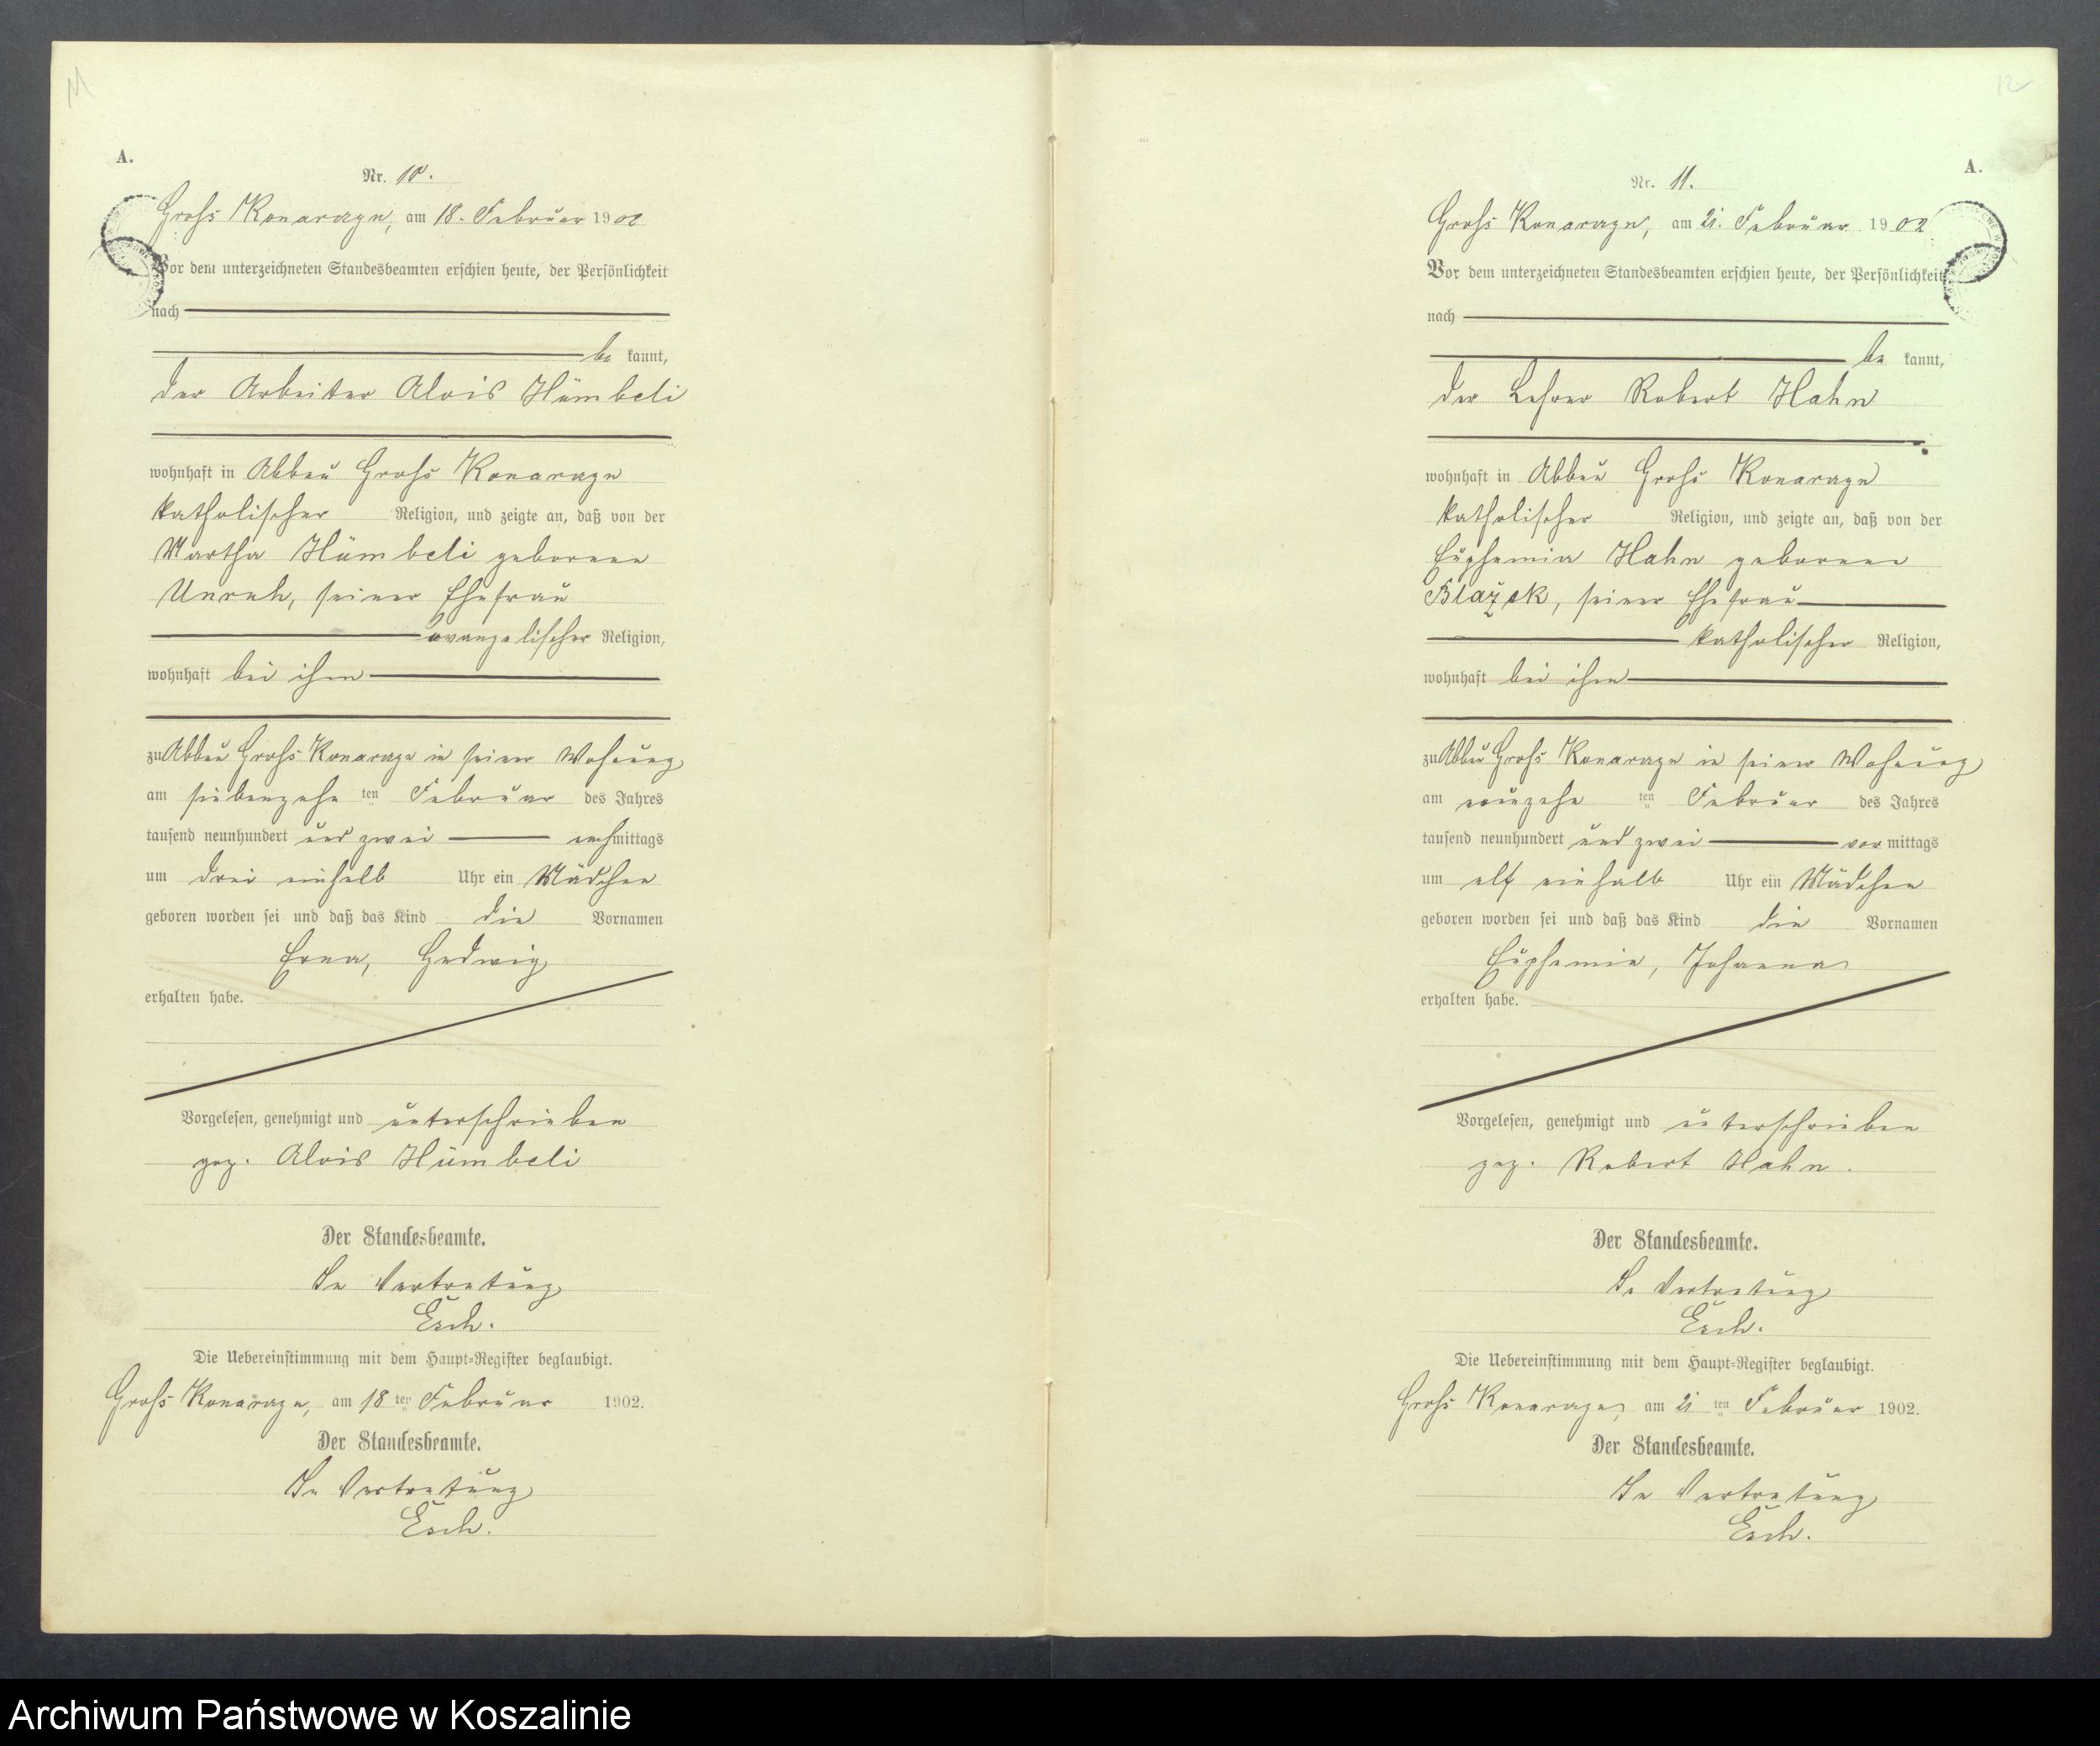 A.
Nr. 10.
Groß Konarczyn, am 18. Februar 1902
Vor dem unterzeichneten Standesbeamten erschien heute, der Persönlichkeit
nach
be kannt,
der Arbeiter Alois Hümbeli
wohnhaft in Abbau Groß Konarczyn
katholischer Religion, und zeigte an, daß von der
Martha Hümbeli geborenen
Unruh, seiner Ehefrau
evangelischer Religion,
wohnhaft bei ihm
zu Abbau Groß Konarczyn in seiner Wohnung
am siebenzehn ten Februar des Jahres
tausend neunhundert und zwei nachmittags
um drei einhalb Uhr ein Mädchen
geboren worden sei und daß das Kind die Vornamen
Erna, Hedwig
erhalten habe.
Vorgelesen, genehmigt und unterschrieben
gez. Alois Hümbeli
Der Standesbeamte.
In Vertretung
Esch.
Die Uebereinstimmung mit dem Haupt-Register beglaubigt.
Groß Konarczyn, am 18 ten Februar 1902.
Der Standesbeamte.
In Vertretung
Esch.
12
A.
Nr. 11.
Groß Konarczyn, am 21. Februar 1902
Vor dem unterzeichneten Standesbeamten erschien heute, der Persönlichkeit
nach
be kannt,
der Lehrer Robert Hahn
wohnhaft in Abbau Groß Konarczyn
katholischer Religion, und zeigte an, daß von der
Euphemia Hahn geborenen
Blażek, seiner Ehefrau
katholischer Religion,
wohnhaft bei ihm
zu Abbau Groß Konarczyn in seiner Wohnung
am neunzehn ten Februar des Jahres
tausend neunhundert und zwei vor mittags
um elf einhalb Uhr ein Mädchen
geboren worden sei und daß das Kind die Vornamen
Euphemia, Johanna
erhalten habe.
Vorgelesen, genehmigt und unterschrieben
gez. Robert Hahn.
Der Standesbeamte.
In Vertretung
Esch.
Die Uebereinstimmung mit dem Haupt-Register beglaubigt.
Groß Konarczyn, am 21 ten Februar 1902.
Der Standesbeamte.
In Vertretung
Esch.
Archiwum Państwowe w Koszalinie